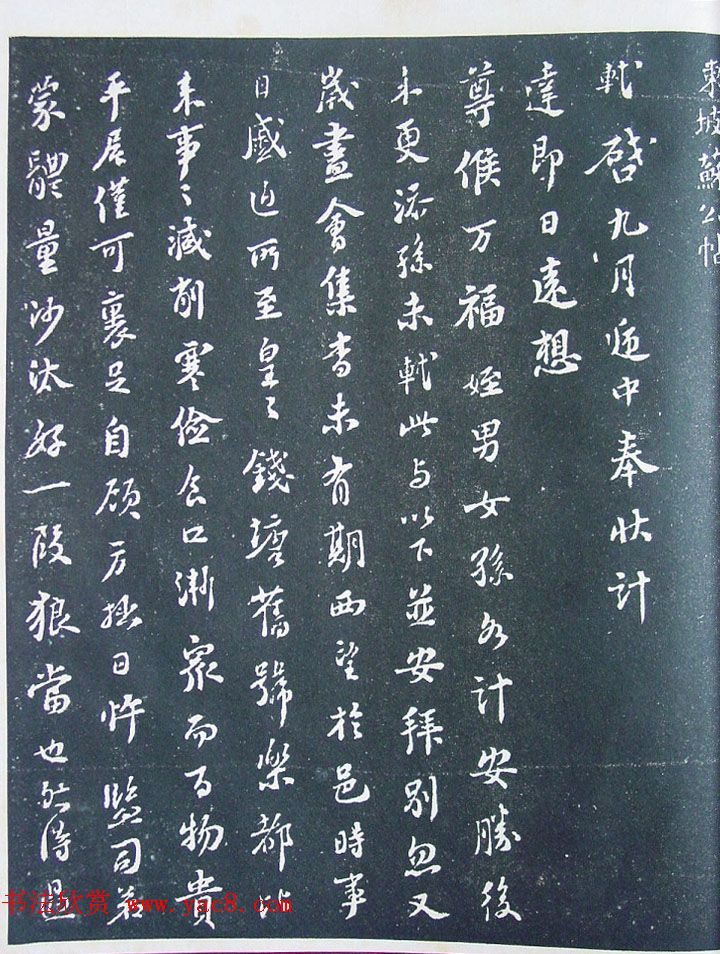 東坡蘇公帖
軾啓九月遞中奉狀計
達即日遠想
尊候万福姪男女孫各計安勝後
未更添孫未軾此与以下並安拜别忽又
歲盡會集杳未有期西望於邑時事
日蹙迫所至皇〻錢塘舊號樂都
来事〻減削寒儉食口漸衆而百物貴
平居僅可裹足自顧方拙日忤監司
蒙體量沙汰好一段狼當也
书法欣赏 www.yac8.com